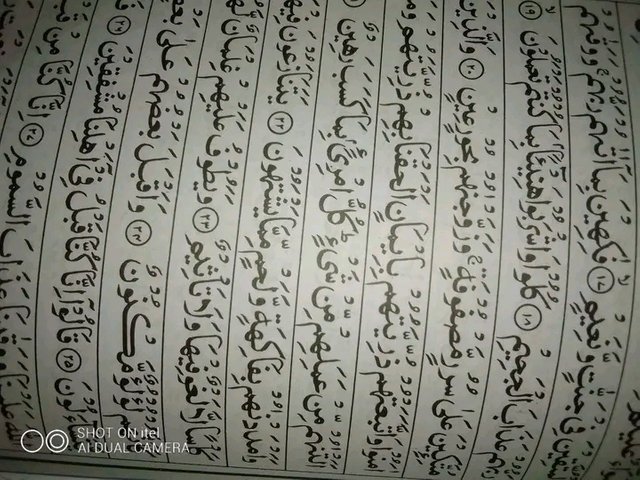 الْمُتَّقِيْنَ فِيْ جَنّٰتٍ وَّنَعِيْمٍ ۝١٧ فٰكِهِيْنَ بِمَاۤ اٰتٰىهُمْ رَبُّهُمْ ۚ وَوَقٰىهُمْ
رَبُّهُمْ عَذَابَ الْجَحِيْمِ ۝١٨ كُلُوْا وَاشْرَبُوْا هَنِيْٓـًٔۢا بِمَا كُنْتُمْ تَعْمَلُوْنَ ۝١٩
مُتَّكِـِٕيْنَ عَلٰى سُرُرٍ مَّصْفُوْفَةٍ ۚ وَزَوَّجْنٰهُمْ بِحُوْرٍ عِيْنٍ ۝٢٠ وَالَّذِيْنَ
اٰمَنُوْا وَاتَّبَعَتْهُمْ ذُرِّيَّتُهُمْ بِاِيْمَانٍ اَلْحَقْنَا بِهِمْ ذُرِّيَّتَهُمْ وَمَاۤ
اَلَتْنٰهُمْ مِّنْ عَمَلِهِمْ مِّنْ شَيْءٍ ؕ كُلُّ امْرِئٍۭ بِمَا كَسَبَ رَهِيْنٌ ۝٢١
وَاَمْدَدْنٰهُمْ بِفَاكِهَةٍ وَّلَحْمٍ مِّمَّا يَشْتَهُوْنَ ۝٢٢ يَتَنَازَعُوْنَ فِيْهَا
كَاْسًا لَّا لَغْوٌ فِيْهَا وَلَا تَاْثِيْمٌ ۝٢٣ وَيَطُوْفُ عَلَيْهِمْ غِلْمَانٌ لَّهُمْ
لُؤْلُؤٌ مَّكْنُوْنٌ ۝٢٤ وَاَقْبَلَ بَعْضُهُمْ عَلٰى بَعْضٍ
۝٢٥ قَالُوْۤا اِنَّا كُنَّا قَبْلُ فِيْۤ اَهْلِنَا مُشْفِقِيْنَ ۝٢٦
اللّٰهُ عَلَيْنَا وَوَقٰىنَا عَذَابَ السَّمُوْمِ ۝٢٧ اِنَّا كُنَّا مِنْ
SHOT ON itel
AI DUAL CAMERA